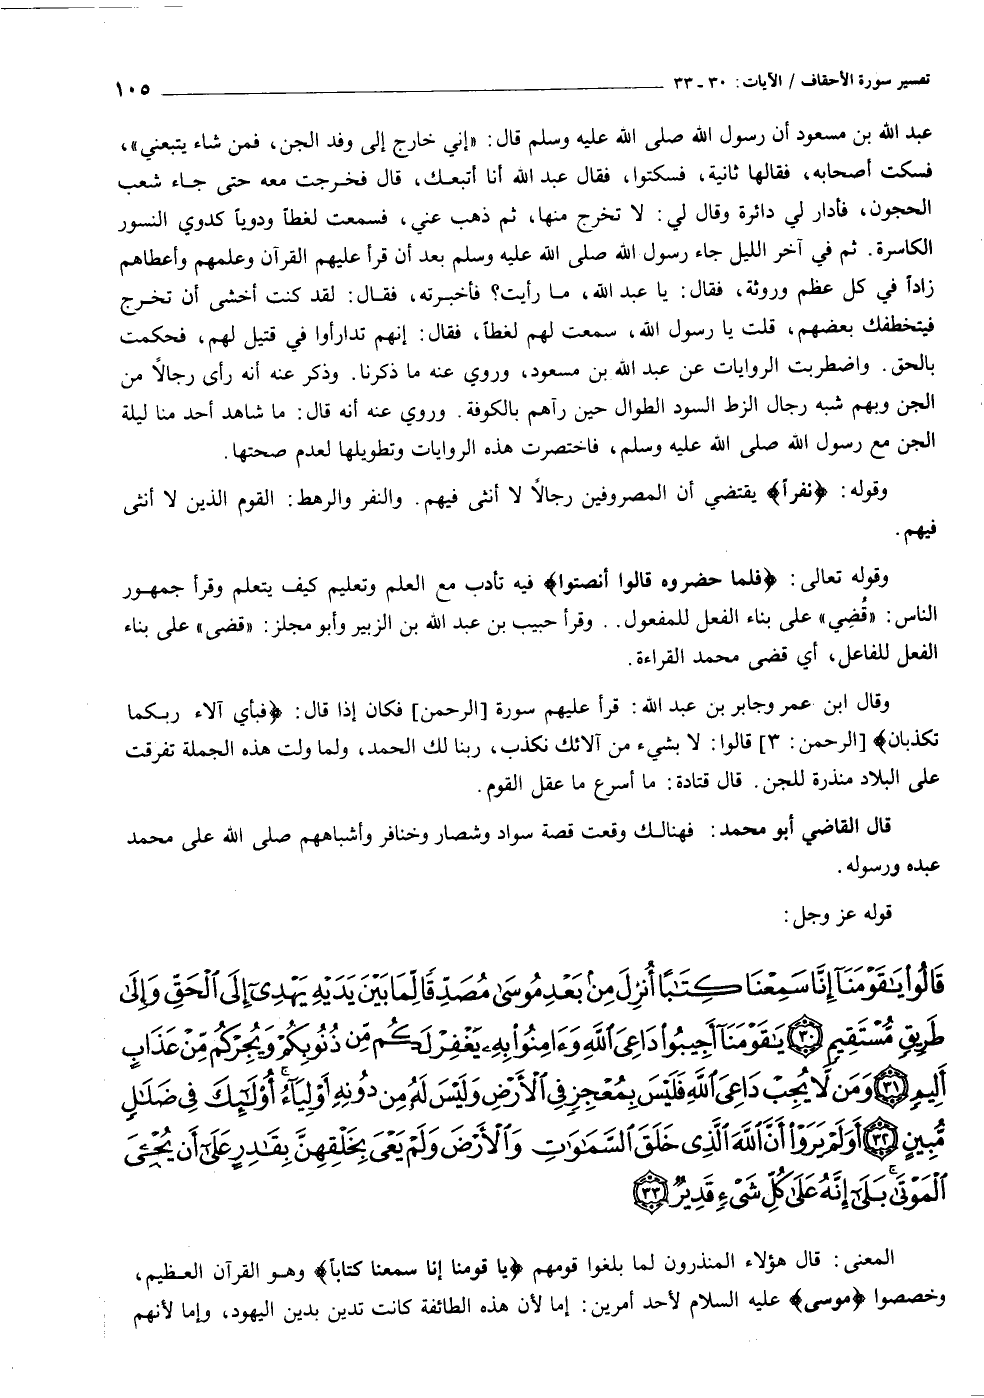 تفسير سورة الأحقاف / الآيات: ٣٠ ـ ٣٣ ١٠٥
عبد الله بن مسعود أن رسول الله صلى الله عليه وسلم قال: «إني خارج إلى وفد الجن، فمن شاء يتبعني»،
فسكت أصحابه، فقالها ثانية، فسكتوا، فقال عبد الله أنا أتبعك، قال فخرجت معه حتى جاء شعب
الحجون، فأدار لي دائرة وقال لي: لا تخرج منها، ثم ذهب عني، فسمعت لغطاً ودوياً كدوي النسور
الكاسرة. ثم في آخر الليل جاء رسول الله صلى الله عليه وسلم بعد أن قرأ عليهم القرآن وعلمهم وأعطاهم
زاداً في كل عظم وروثة، فقال: يا عبد الله، ما رأيت؟ فأخبرته، فقال: لقد كنت أخشى أن تخرج
فيتخطفك بعضهم، قلت يا رسول الله، سمعت لهم لغطاً، فقال: إنهم تدارأوا في قتيل لهم، فحكمت
بالحق. واضطربت الروايات عن عبد الله بن مسعود، وروي عنه ما ذكرنا. وذكر عنه أنه رأى رجالاً من
الجن وبهم شبه رجال الزط السود الطوال حين رآهم بالكوفة. وروي عنه أنه قال: ما شاهد أحد منا ليلة
الجن مع رسول الله صلى الله عليه وسلم، فاختصرت هذه الروايات وتطويلها لعدم صحتها.
وقوله: ﴿نفراً﴾ يقتضي أن المصروفين رجالاً لا أنثى فيهم. والنفر والرهط: القوم الذين لا أنثى
فيهم.
وقوله تعالى: ﴿فلما حضروه قالوا أنصتوا﴾ فيه تأدب مع العلم وتعليم كيف يتعلم وقرأ جمهور
الناس: «قُضِي» على بناء الفعل للمفعول.. وقرأ حبيب بن عبد الله بن الزبير وأبو مجلز: «قضى» على بناء
الفعل للفاعل، أي قضى محمد القراءة.
وقال ابن عمر وجابر بن عبد الله: قرأ عليهم سورة [الرحمن] فكان إذا قال: ﴿فبأي آلاء ربكما
تكذبان﴾ [الرحمن: ٣] قالوا: لا بشيء من آلائك نكذب، ربنا لك الحمد، ولما ولت هذه الجملة تفرقت
على البلاد منذرة للجن. قال قتادة: ما أسرع ما عقل القوم.
قال القاضي أبو محمد: فهنالك وقعت قصة سواد وشصار وخنافر وأشباههم صلى الله على محمد
عبده ورسوله.
قوله عز وجل:
قَالُوا۟ يَٰقَوْمَنَآ إِنَّا سَمِعْنَا كِتَٰبًا أُنزِلَ مِنۢ بَعْدِ مُوسَىٰ مُصَدِّقًا لِّمَا بَيْنَ يَدَيْهِ يَهْدِىٓ إِلَى ٱلْحَقِّ وَإِلَىٰ
طَرِيقٍ مُّسْتَقِيمٍ ٣٠ يَٰقَوْمَنَآ أَجِيبُوا۟ دَاعِىَ ٱللَّهِ وَءَامِنُوا۟ بِهِۦ يَغْفِرْ لَكُم مِّن ذُنُوبِكُمْ وَيُجِرْكُم مِّنْ عَذَابٍ
أَلِيمٍ ٣١ وَمَن لَّا يُجِبْ دَاعِىَ ٱللَّهِ فَلَيْسَ بِمُعْجِزٍ فِى ٱلْأَرْضِ وَلَيْسَ لَهُۥ مِن دُونِهِۦٓ أَوْلِيَآءُ ۚ أُو۟لَٰٓئِكَ فِى ضَلَٰلٍ
مُّبِينٍ ٣٢ أَوَلَمْ يَرَوْا۟ أَنَّ ٱللَّهَ ٱلَّذِى خَلَقَ ٱلسَّمَٰوَٰتِ وَٱلْأَرْضَ وَلَمْ يَعْىَ بِخَلْقِهِنَّ بِقَٰدِرٍ عَلَىٰٓ أَن يُحْـِۧىَ
ٱلْمَوْتَىٰ ۚ بَلَىٰٓ إِنَّهُۥ عَلَىٰ كُلِّ شَىْءٍ قَدِيرٌ ٣٣
المعنى: قال هؤلاء المنذرون لما بلغوا قومهم ﴿يا قومنا إنا سمعنا كتاباً﴾ وهو القرآن العظيم،
وخصصوا ﴿موسى﴾ عليه السلام لأحد أمرين: إما لأن هذه الطائفة كانت تدين بدين اليهود، وإما لأنهم